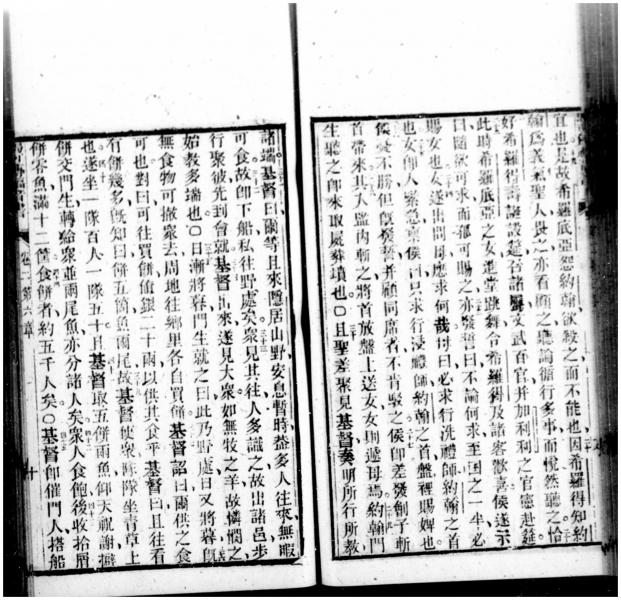 宜也是故希羅底亞怨約翰欲殺之而不能也因希羅得知約
翰為義氣聖人畏之亦看顧之聽論循行多事而悅然聽之恰
好希羅得壽誕設筵召諸爵文武百官并加利利之官憲赴筵
此時希羅底亞之女進堂跳舞令希羅得及諸客歡喜侯遂示
曰隨欲可求而都可賜之亦發誓曰不論何求至国之一半必
賜女也女遂出問母應求何哉母曰必求行洗禮師約翰之首
也女即入案急稟侯曰只求行浸禮師約翰之首盤裡賜婢也
侯憂不勝但既發誓并顧同席者不肯駁之侯即差發劊子斬
首帶來其入監內斬之將首放盤上送女女則遞母焉約翰門
生聽之即來取屍葬墳也〇且聖差聚見基督奏明所行所教
諸端基督曰爾等且來隱居山野安息暫時蓋多人往來無暇
可食故即下船私往野處矣眾見其往人多識之故出諸邑步
行聚彼先到會就基督出來遂見大眾如無牧之羊故憐憫之
始教多端也〇日漸將暮門生就之曰此乃野處日又將暮既
無食物可撤眾去周地往鄉里各自買餅基督詔曰爾供之食
可也對曰可往買餅值銀二十兩以供其食乎基督曰且往看
有餅幾多既知曰餅五箇魚兩尾故基督使眾隊隊坐青草上
也遂坐一隊百人一隊五十且基督取五餅兩魚仰天祝謝擗
餅交門生轉給眾並兩尾魚亦分諸人矣眾人食飽後收拾屑
餅客魚滿十二筐食餅者約五千人矣〇基督即催門人搭船
卷二第六章
十